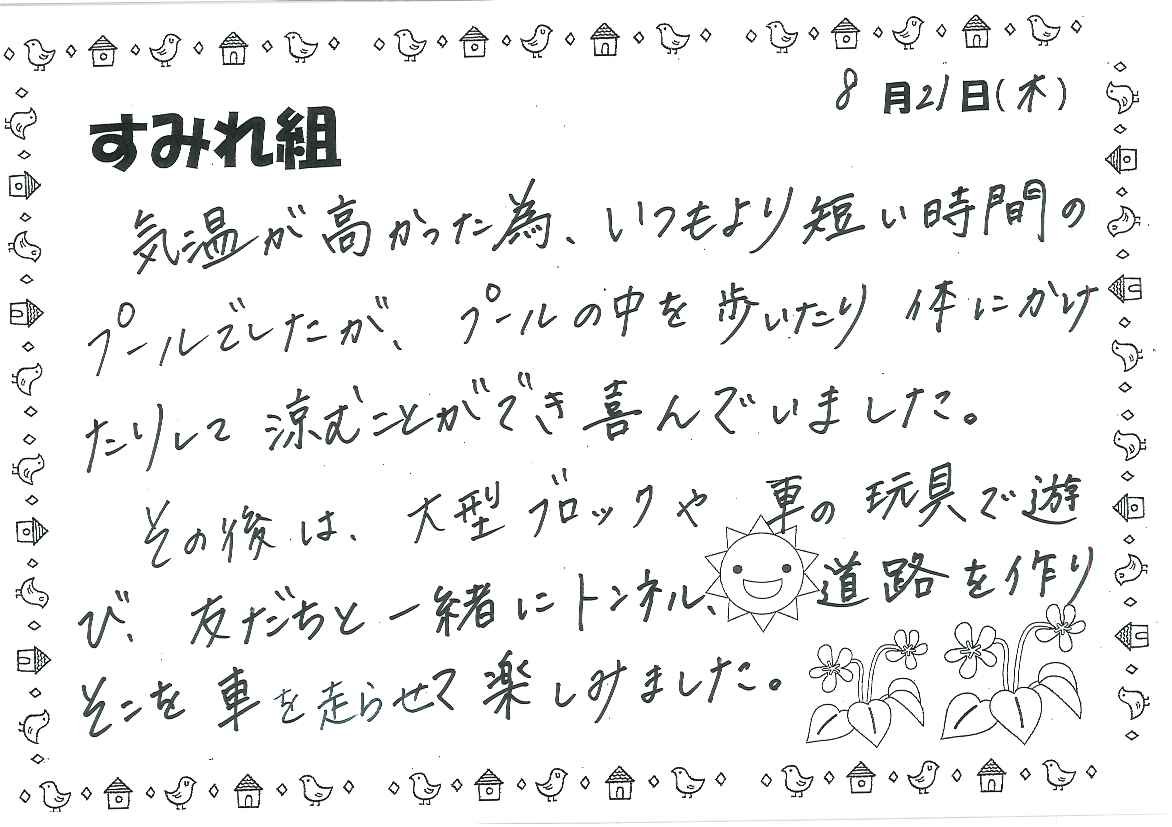 8月21日(木)
すみれ組
気温が高かった為、いつもより短い時間の
プールでしたが、プールの中を歩いたり体にかけ
たりして涼むことができ喜んでいました。
その後は、大型ブロックや車の玩具で遊
び、友だちと一緒にトンネル、道路を作り
そこを車を走らせて楽しみました。